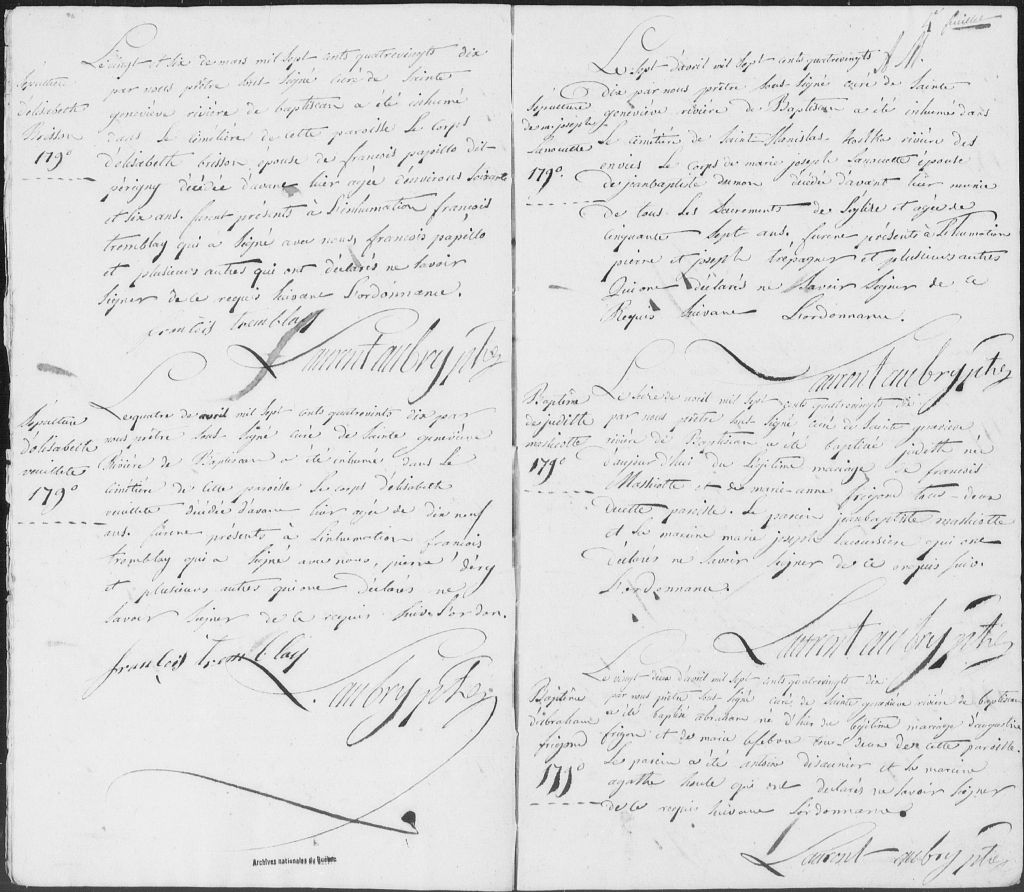 Sépulture
d'elisabeth
Brisson
1790
Le vingt et dix de mars mil sept cents quatrevingts dix
par nous prêtre sous-signé curé de Sainte
geneviève rivière de baptiscan a été inhumé
dans le cimetière de cette paroisse le corps
d'elisabeth brisson epouse de françois papillo dit
périgny décédée d'avant hier agée d'environs soixante
et dix ans. furent présents à l'inhumation françois
tremblay qui a signé avec nous, françois papillo
et plusieurs autres qui ont déclarés ne savoir
signer de ce requis suivant l'ordonnance.
francois tremblay
Laurent aubry ptre
Sépulture
d'elisabeth
veuillete
1790
Le quatre de avril mil sept cents quatrevints dix par
nous prêtre sous-signé curé de Sainte geneviève
Rivière de Baptiscan a été inhumé dans le
cimetière de cette paroisse le corps d'elisabeth
veuillete décédée d'avant hier agée de dix neuf
ans. furent présents à l'inhumation françois
tremblay qui a signé avec nous, pierre déry
et plusieurs autres qui ont déclarés ne
savoir signer de ce requis suiv. l'ordon.
françois tremblay
L. aubry ptre
Archives nationales du Québec
4e feuillet
Sépulture
de m. joseph
Lanouette
1790.
Le sept d'avril mil sept cents quatrevingts
dix par nous prêtre sous-signé curé de Sainte
geneviève rivière de Baptiscan a été inhumé dans
le cemétière de Saint-Stanislas-Kostka rivière des
envies le corps de marie joseph Lanouette épouse
de jeanbaptiste décédée d'avant hier munie
de tous les sacrements de l'eglise et agée de
cinquante sept ans. furent présents à l'inhumation
pierre et joseph trépagner et plusieurs autres
Qui ont déclarés ne savoir signer de ce
Requis suivant L'ordonnance.
Laurent aubry ptre
Baptême
de judith
maskcotte
1790
Le seize de avril mil sept cents quatrevingts dix
par nous prêtre sous-signé curé de Sainte geneviève
rivière de Baptiscan a été baptisé judith née
d'aujourd'hui du légitime mariage de francois
Maskcotte et de marie-anne frigond tous-deux
de cette paroisse. Le parein jeanbaptiste maskcotte
et la mareine marie joseph qui ont
déclarés ne savoir signer de ce requis suiv.
l'ordonnance.
Laurent aubry ptre
Baptême
d'abraham
frigond
1790
Le vingt deux d'avril mil sept cents quatrevingts dix
par nous prêtre sous-signé curé de Sainte geneviève rivière de baptiscan
a été baptisé abraham né d'hier du légitime mariage d'augustin
frigon et de marie lefebvre tous-deux de cette paroisse.
Le parein a été antoine désaunier et la mareine
agathe houle qui ont declarés ne savoir signer
de ce requis suivant l'ordonnance.
Laurent aubry ptre